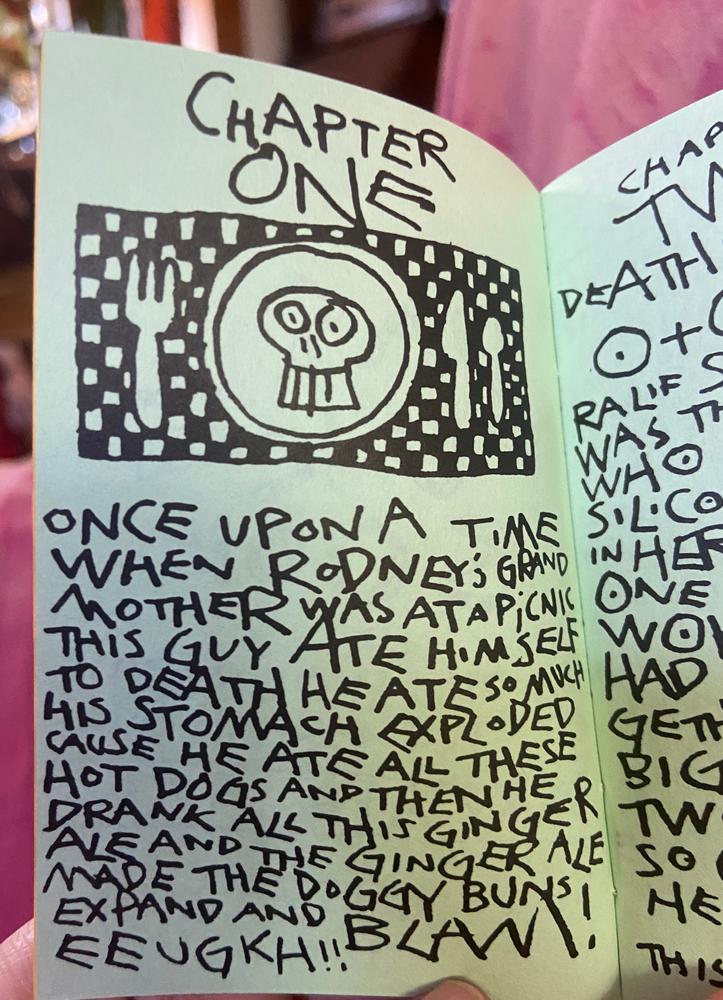 CHAPTER
ONE
ONCE UPON A TIME
WHEN RODNEY'S GRAND
MOTHER WAS AT A PICNIC
THIS GUY ATE HIMSELF
TO DEATH HE ATE SO MUCH
HIS STOMACH EXPLODED
CAUSE HE ATE ALL THESE
HOT DOGS AND THEN HE
DRANK ALL THIS GINGER
ALE AND THE GINGER ALE
MADE THE DOGGY BUNS
EXPAND AND BLAM!
EEUGKH!!
DEATH
RALIF
WAS
WHO
IN HER
ONE
HAD
HE
THIS